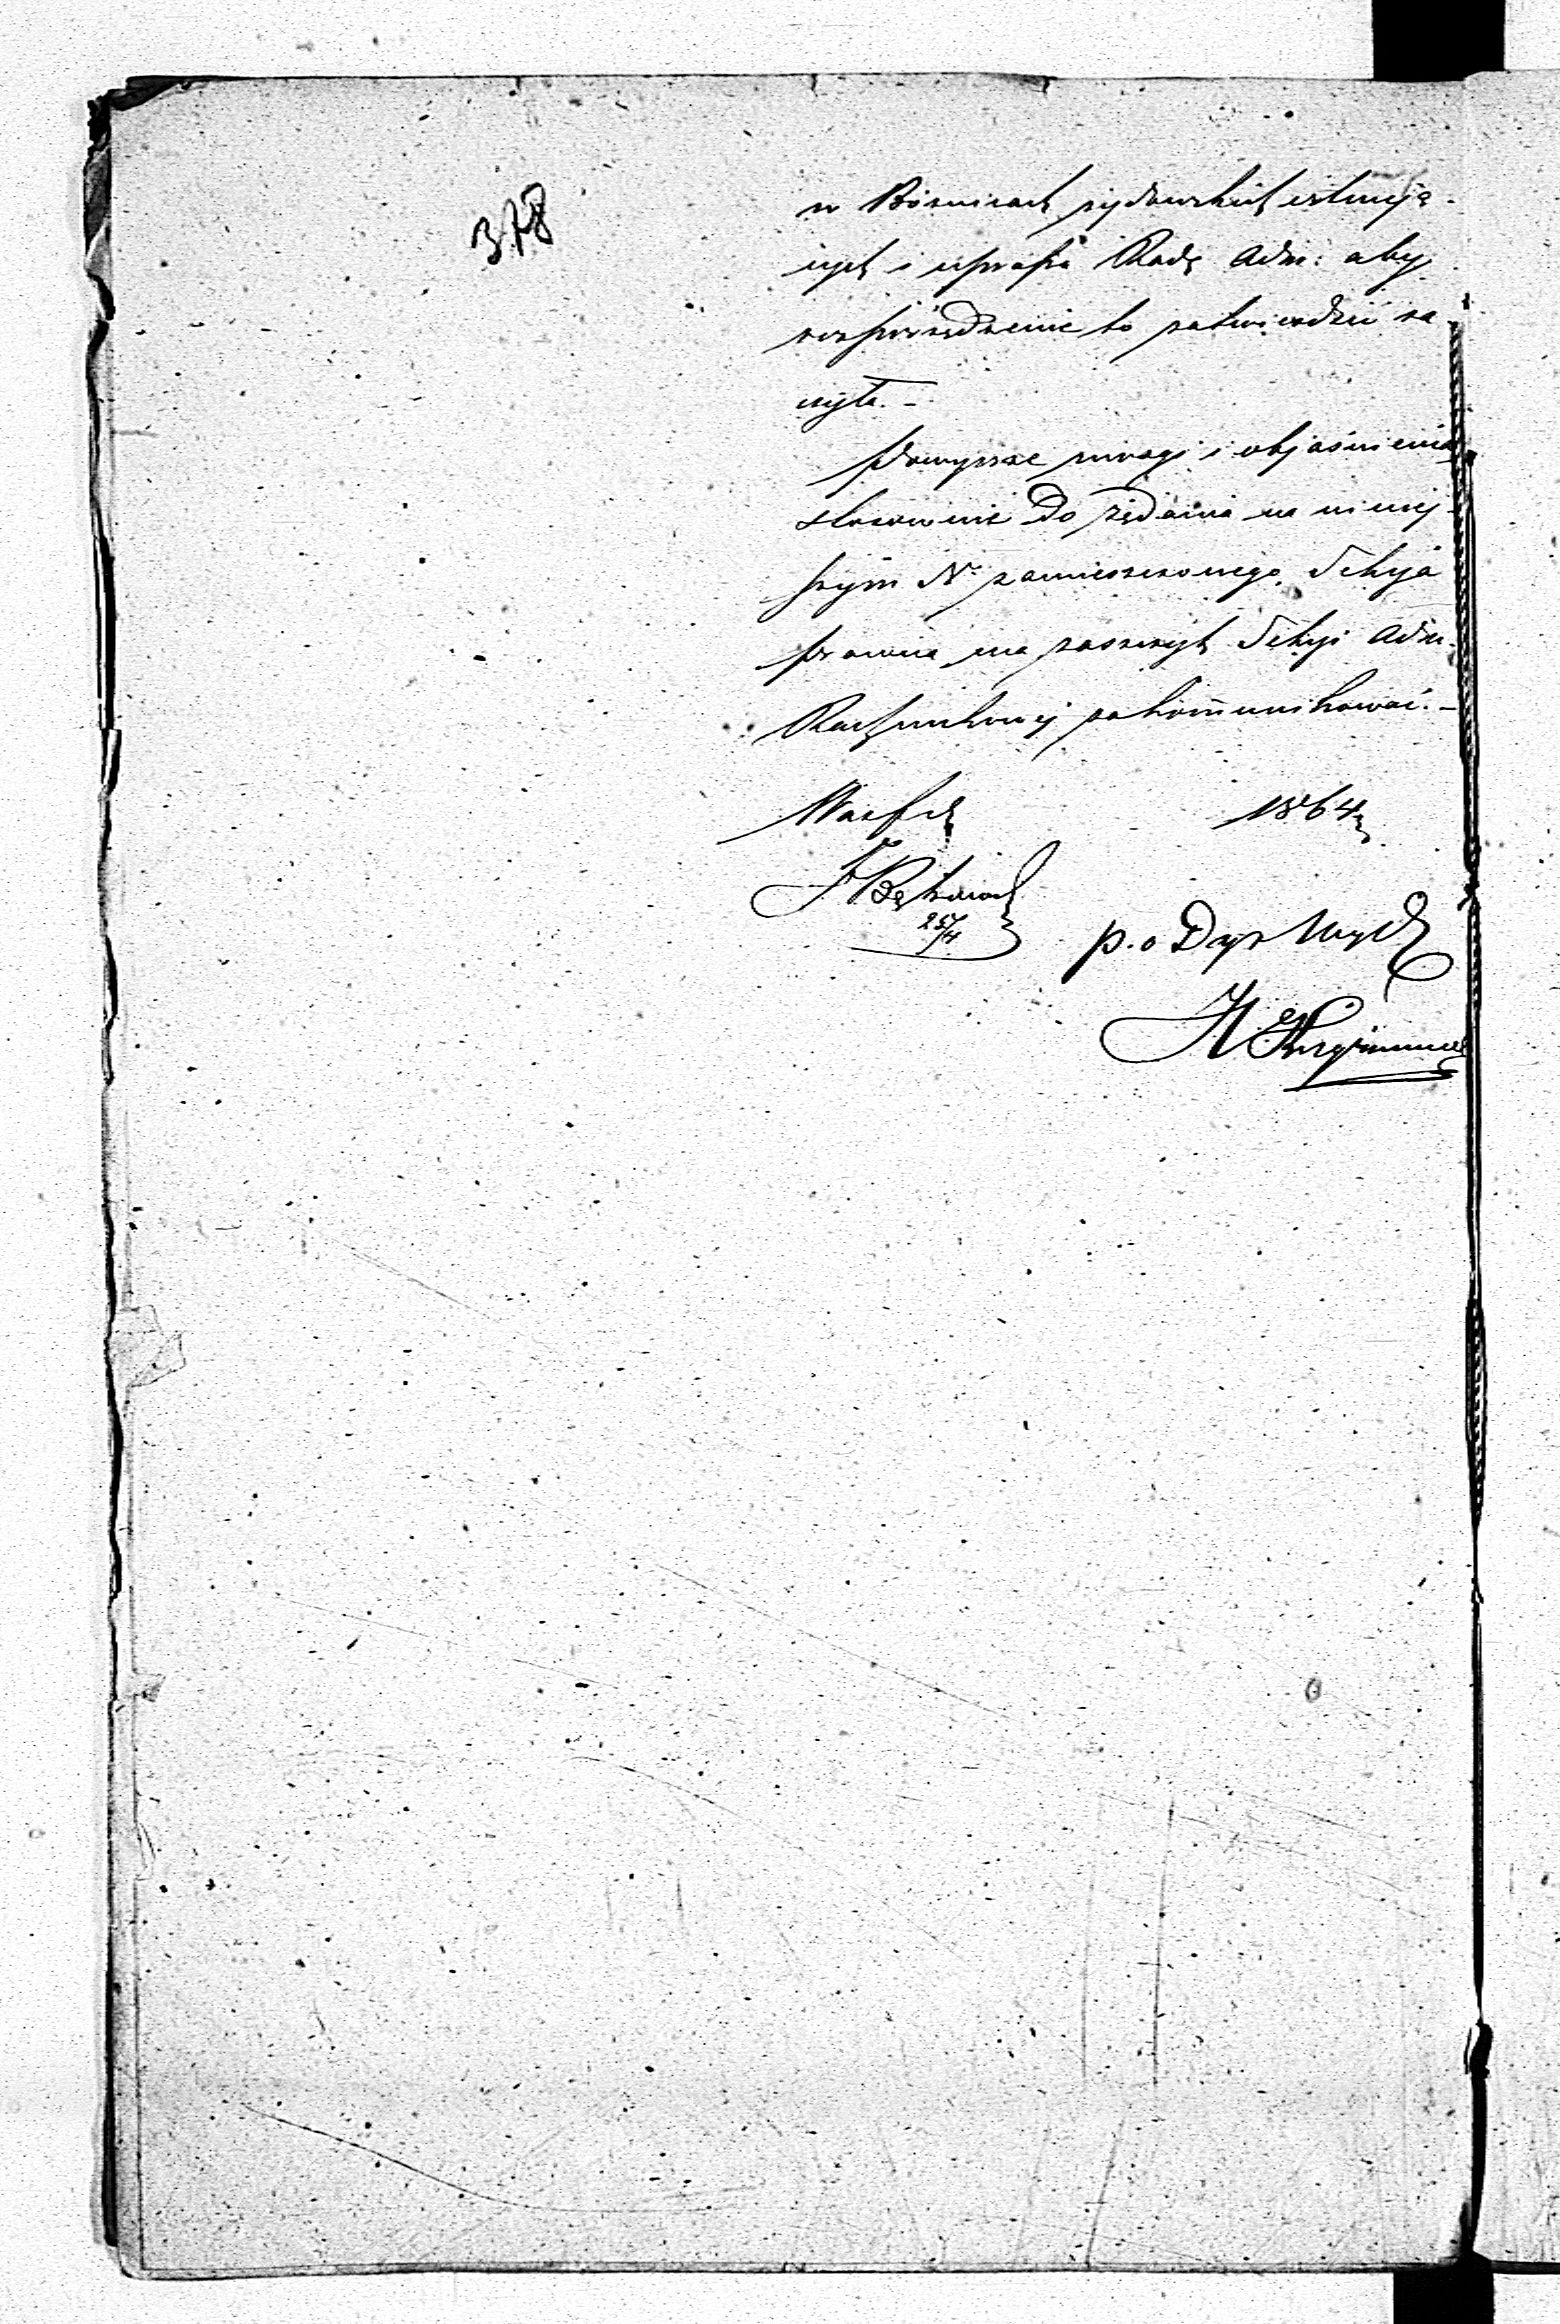 378
w Bóżnicach żydowskich istnieją-
cych i uprasza Radę Adm: aby
rozporządzenie to zatwierdzić ra-
czyła. –
Powyższe uwagi i objaśnienia
stosownie do żądania na niniej-
szym N. zamieszczonego, Sekcja
prawna ma zaszczyt Sekcji Adm.
Rachunkowej zakom̄unikować. –
Warsz d 1864 r
25/4
p. o Dyr Wydz